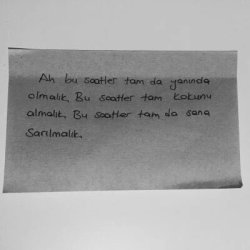 Ah bu saatler tam da yanında
olmalık, Bu saatler tam kokunu
almalık, Bu saatler tam da sana
Sarılmalık.